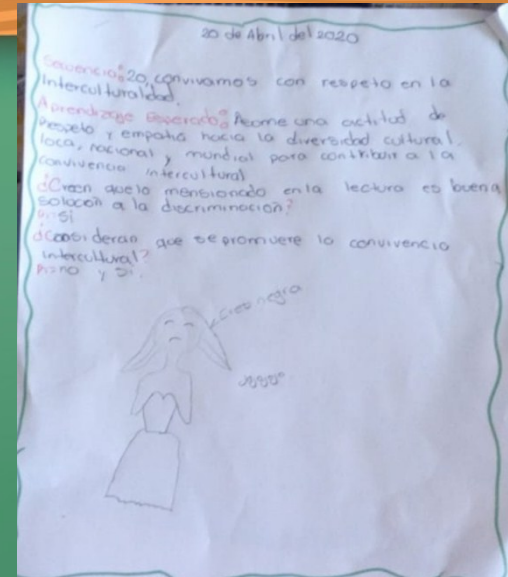 20 de Abril del 2020
Secuencia: 20 convivamos con respeto en la
Interculturalidad.
Aprendizaje Esperado: Asome una actitud de
Respeto y empatia hacia la diversidad cultural.
loca, nacional, y mundial para contribuir a la
convivencia intercultural
¿Creen que lo mensionado en la lectura es buena
solocion a la discriminacion?
R: si
¿Consideran que se promuere la convivencia
intercultural?
R: no y si.
negra